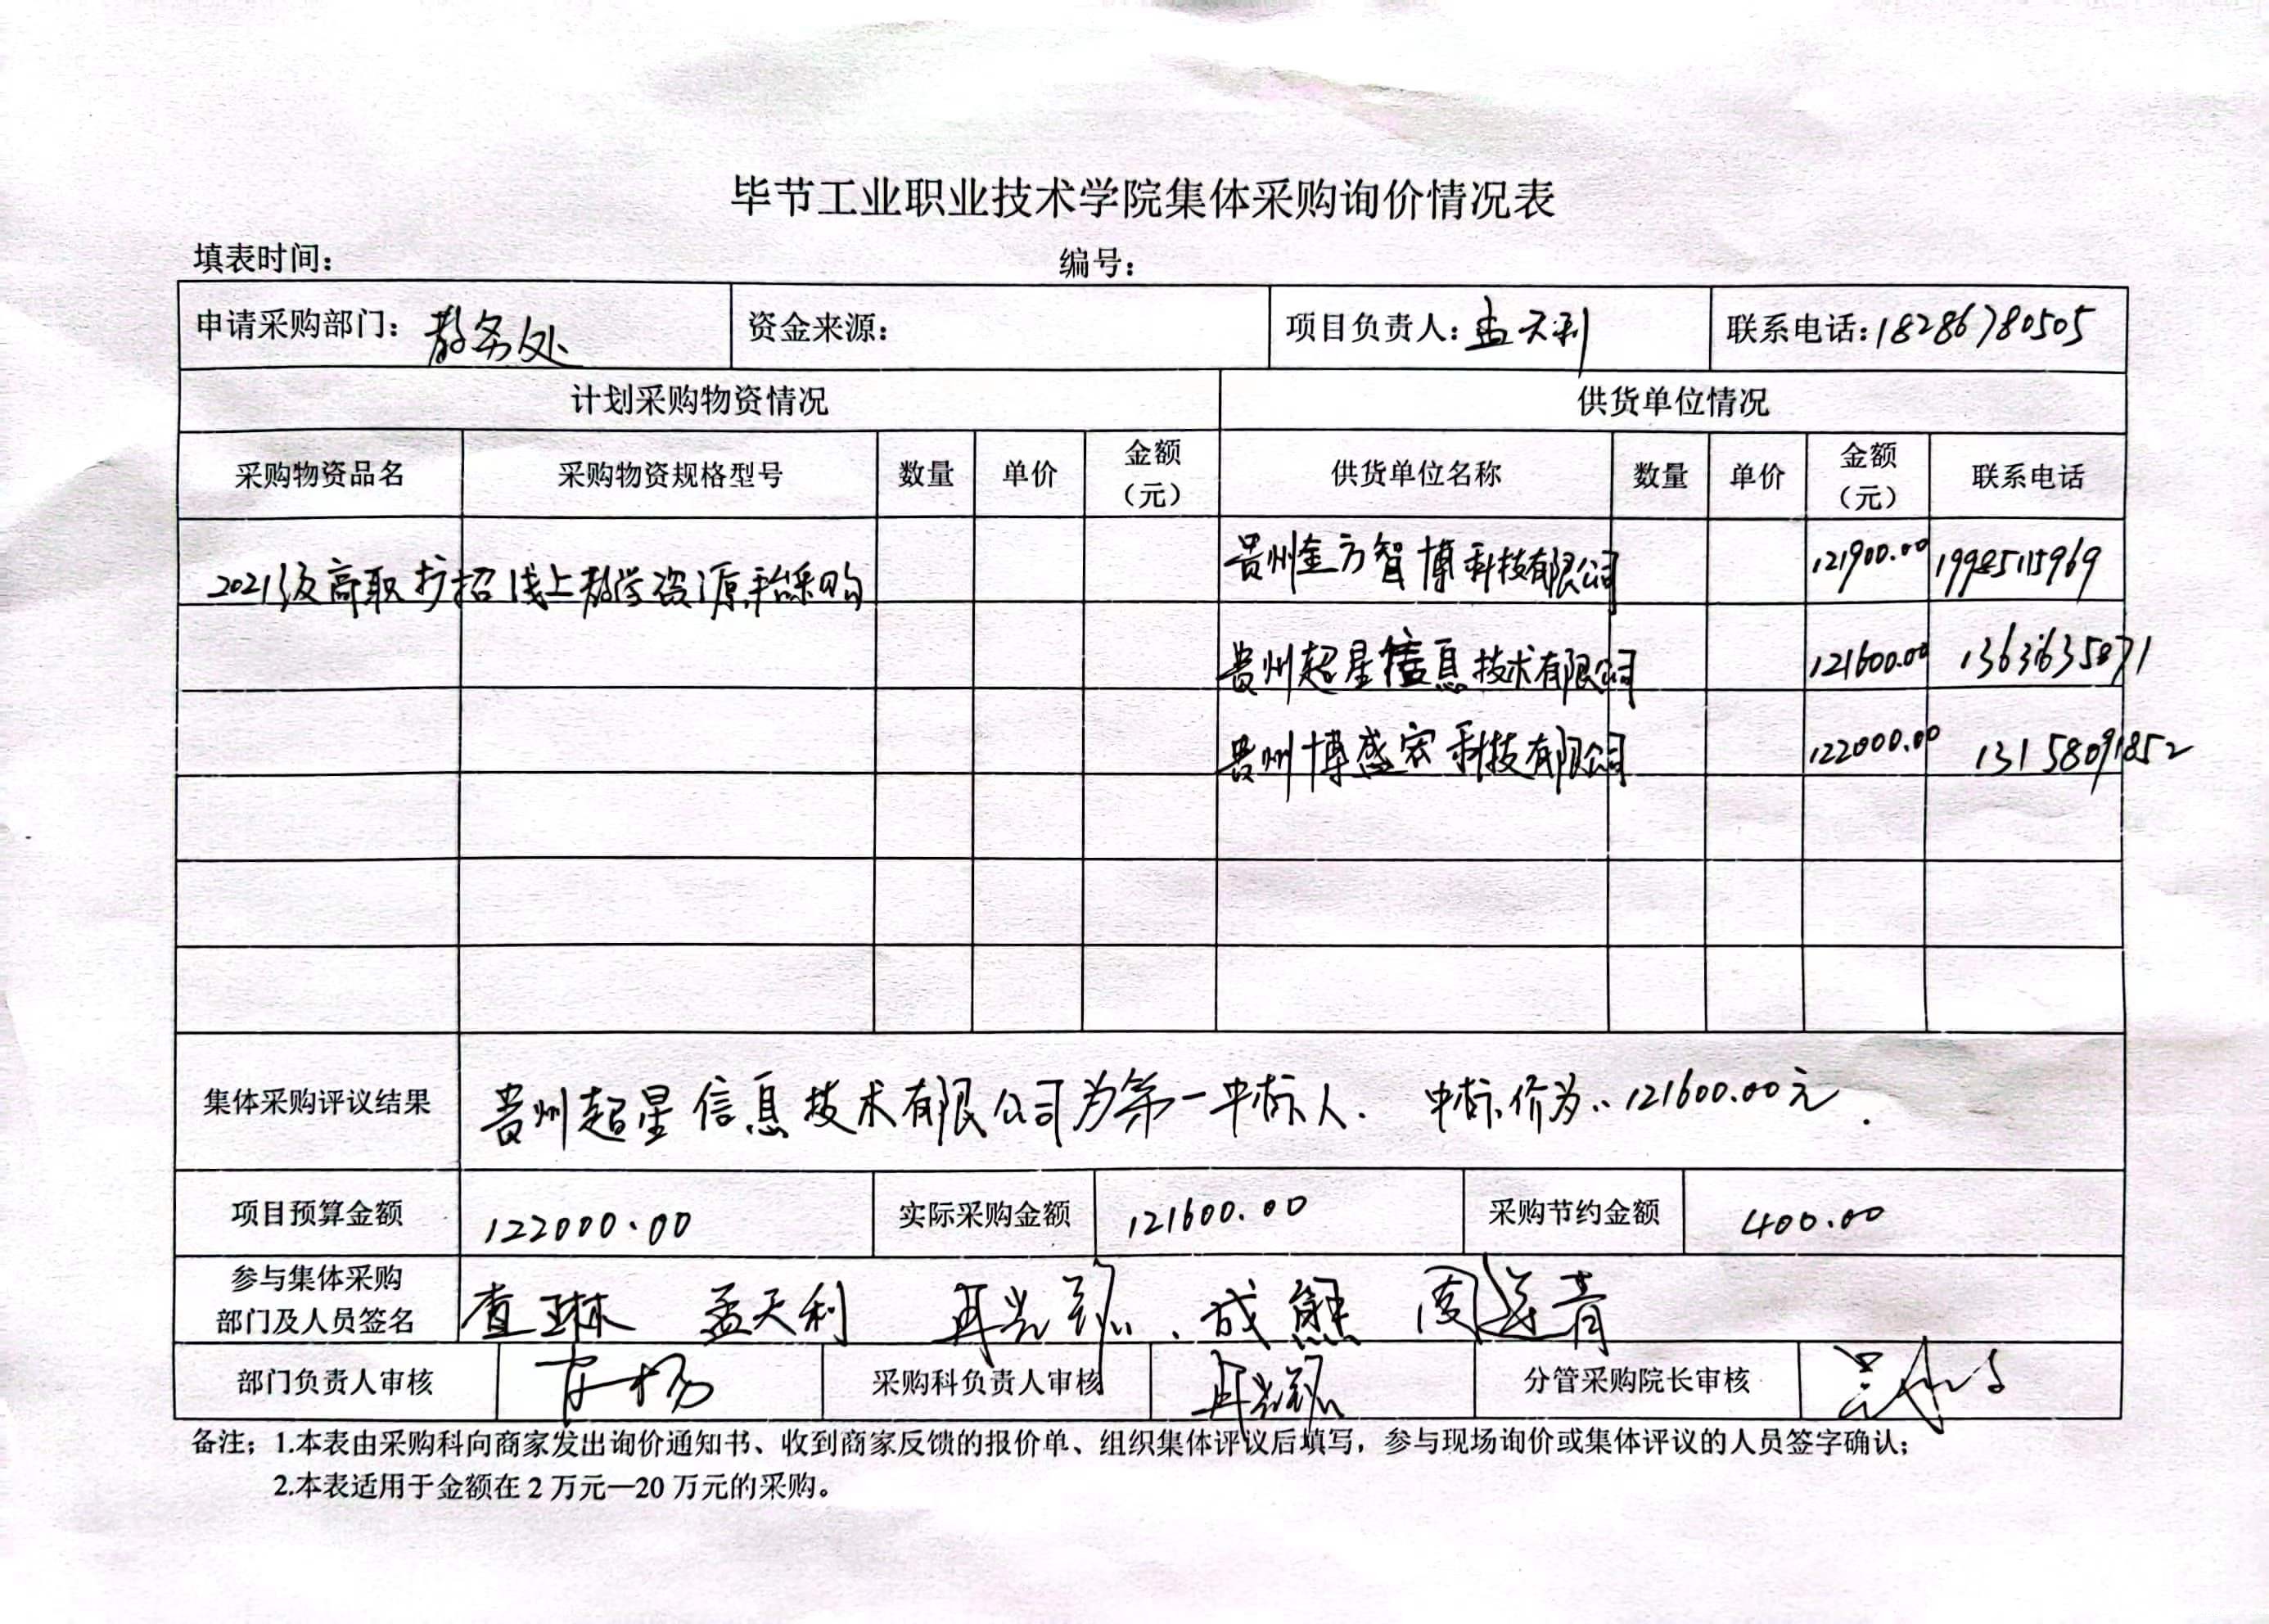 毕节工业职业技术学院集体采购询价情况表
填表时间： 编号：
申请采购部门：教务处 资金来源： 项目负责人：孟天利 联系电话：18286780505
计划采购物资情况 供货单位情况
采购物资品名 采购物资规格型号 数量 单价 金额（元） 供货单位名称 数量 单价 金额（元） 联系电话
2021级高职扩招线上教学资源平台采购 贵州金方智博科技有限公司 121900.00 19985115969
贵州超星信息技术有限公司 121600.00 13636135071
贵州博盛宏科技有限公司 122000.00 13158091852
集体采购评议结果 贵州超星信息技术有限公司为第一中标人. 中标价为:121600.00元.
项目预算金额 122000.00 实际采购金额 121600.00 采购节约金额 400.00
参与集体采购部门及人员签名 查琳 孟天利 成熊
部门负责人审核 采购科负责人审核 分管采购院长审核
备注；1.本表由采购科向商家发出询价通知书、收到商家反馈的报价单、组织集体评议后填写，参与现场询价或集体评议的人员签字确认；
2.本表适用于金额在2万元—20万元的采购。